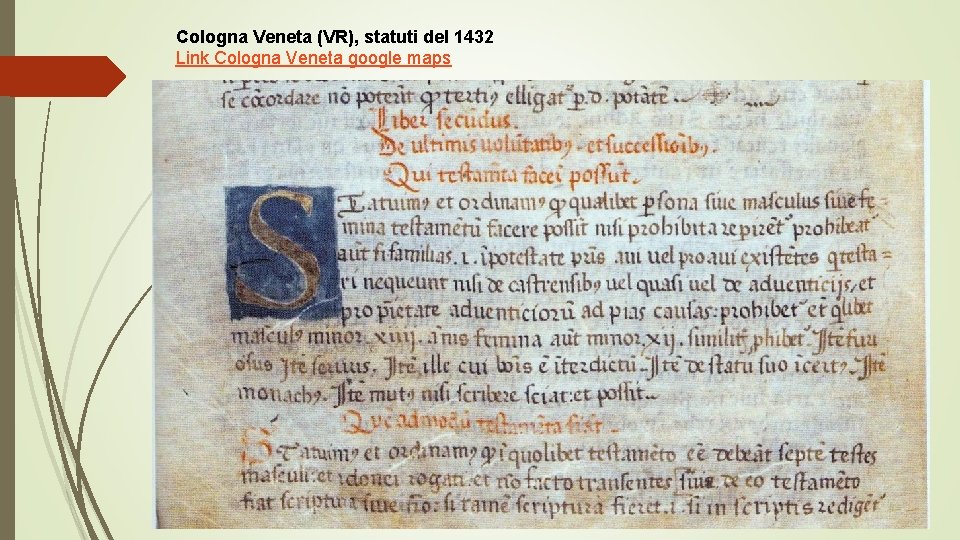 Cologna Veneta (VR), statuti del 1432
Link Cologna Veneta google maps
se cōcordare nō poterīt qͥ tertiꝰ elligat̄ p.d. potātē..
Liber secūdus.
De ultimis uolūtatibꝰ. et successioībꝰ.
Qui testam̄ta facēi possūt.
Statuimꝰ et ordinamꝰ qꝫ qualibet ꝑsona siue masculus siue fe
mina testamētū facere possit nisi prohibita repirēt̄ prohibeāt̄
aūt fi familias. i. ī potestate pr̄is aui uel pro aui existētes q testa =
ri nequeunt nisi de castrensibꝰ uel quasi uel de aduenticijs, et
pro pīetate aduenticiorū ad pias causas: prohibet̄ et qͥlibet
masculꝰ minor. xiiij. ānis femina aūt minor. xij. similit̄ ꝓhibet̄. Itē furi
osus Itē seruus. Itē, ille cui bōis ē īterdictū. Itē de statu suo īcertꝰ. Itē
monachꝰ. Itē mutꝰ nisi scribere sciat: et possit..
Quē ad modū testamēta fiāt.
Statuimꝰ et ordinamꝰ qꝫ ī quolibet testamēto eē debeāt septē testes
masculi: et idonei rogati: et nō facto transeuntes siue de eo testamēto
fiat scriptura siue nō: si tamē scriptura fieret. i. si in scriptis redigēt̄